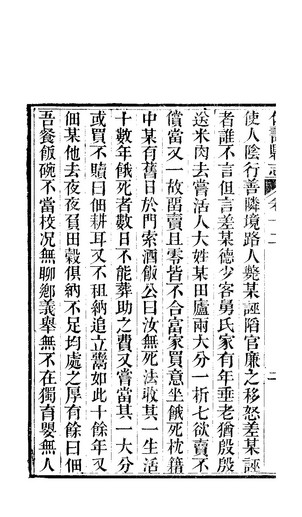 使人陰行善隣境路人斃某誣陷官廉之移怒差某誣
者誰不言但言差某德少客舅氏家有年垂老猶殷殷
送米肉去嘗活人大姓某田廬兩大分一析七欲賣不
償當又一故留賣且零皆不合富家買意坐餓死枕籍
中某有舊日於門索酒飯公曰汝無死法收其一生活
十數年餓死者數日不能葬助之費又嘗當其一大分
或買不贖曰佃耕耳又不租納追立鬻如此十餘年又
佃某他去夜夜負田穀俱納不足均處之厚有餘曰佃
吾餐飯碗不當校况無聊鄕義舉無不在獨育嬰無人
卷十二
二